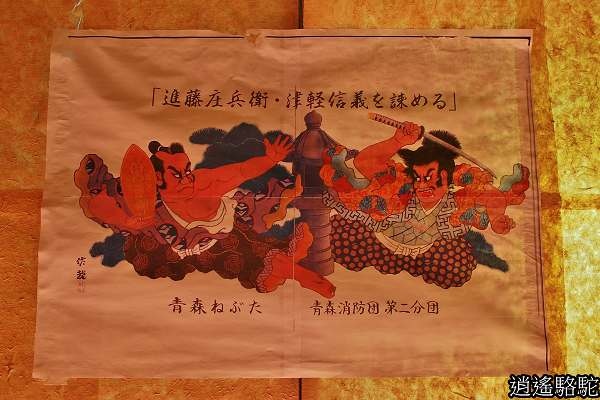 「進藤庄兵衛・津軽信義を諫める」
青森ねぶた
青森消防団 第二分団
逍遙駱駝